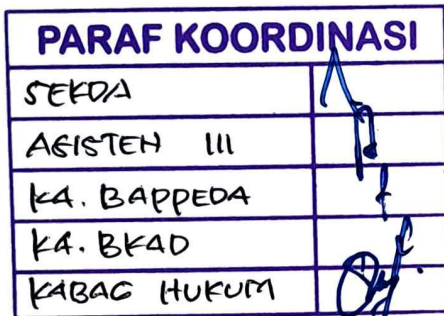 PARAF KOORDINASI
SEKDA
ASISTEN III
KA. BAPPEDA
KA. BKAD
KABAG HUKUM